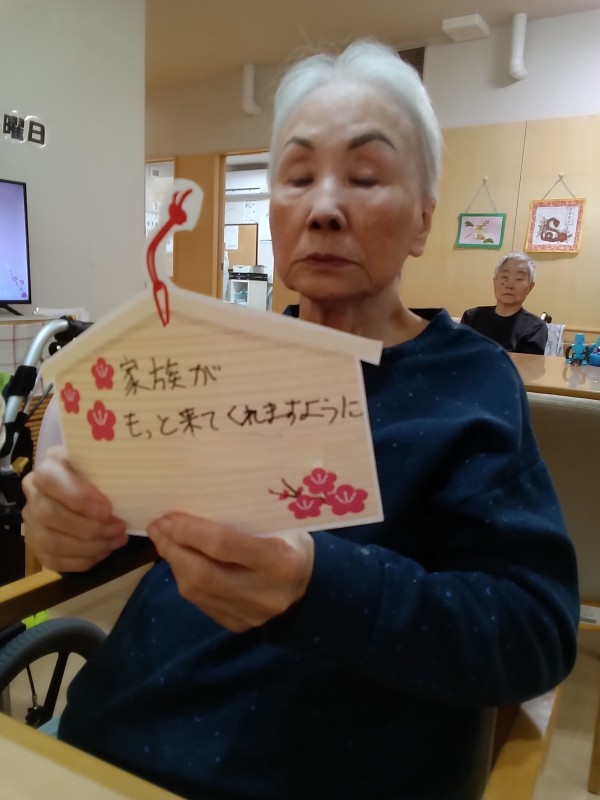 曜日
家族が
もっと来てくれますように